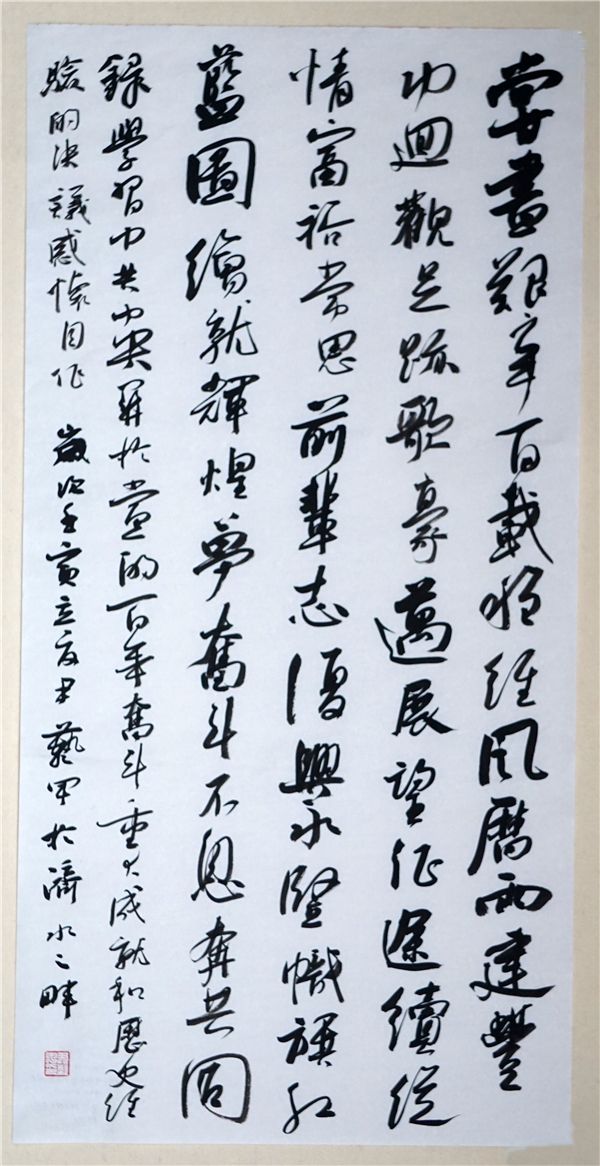 嘗盡艱辛百載經風歷雨建豐
功迴觀足跡歌豪邁展望征途續縱
情富裕常思前輩志復興永豎幟旗紅
藍圖繪就輝煌夢奮斗不息奔共同
錄學習中共中央關於黨的百年奮斗重大成就和歷史經
驗的決議感懷自作 歲次壬寅立夏尹藝甲於濟水之畔